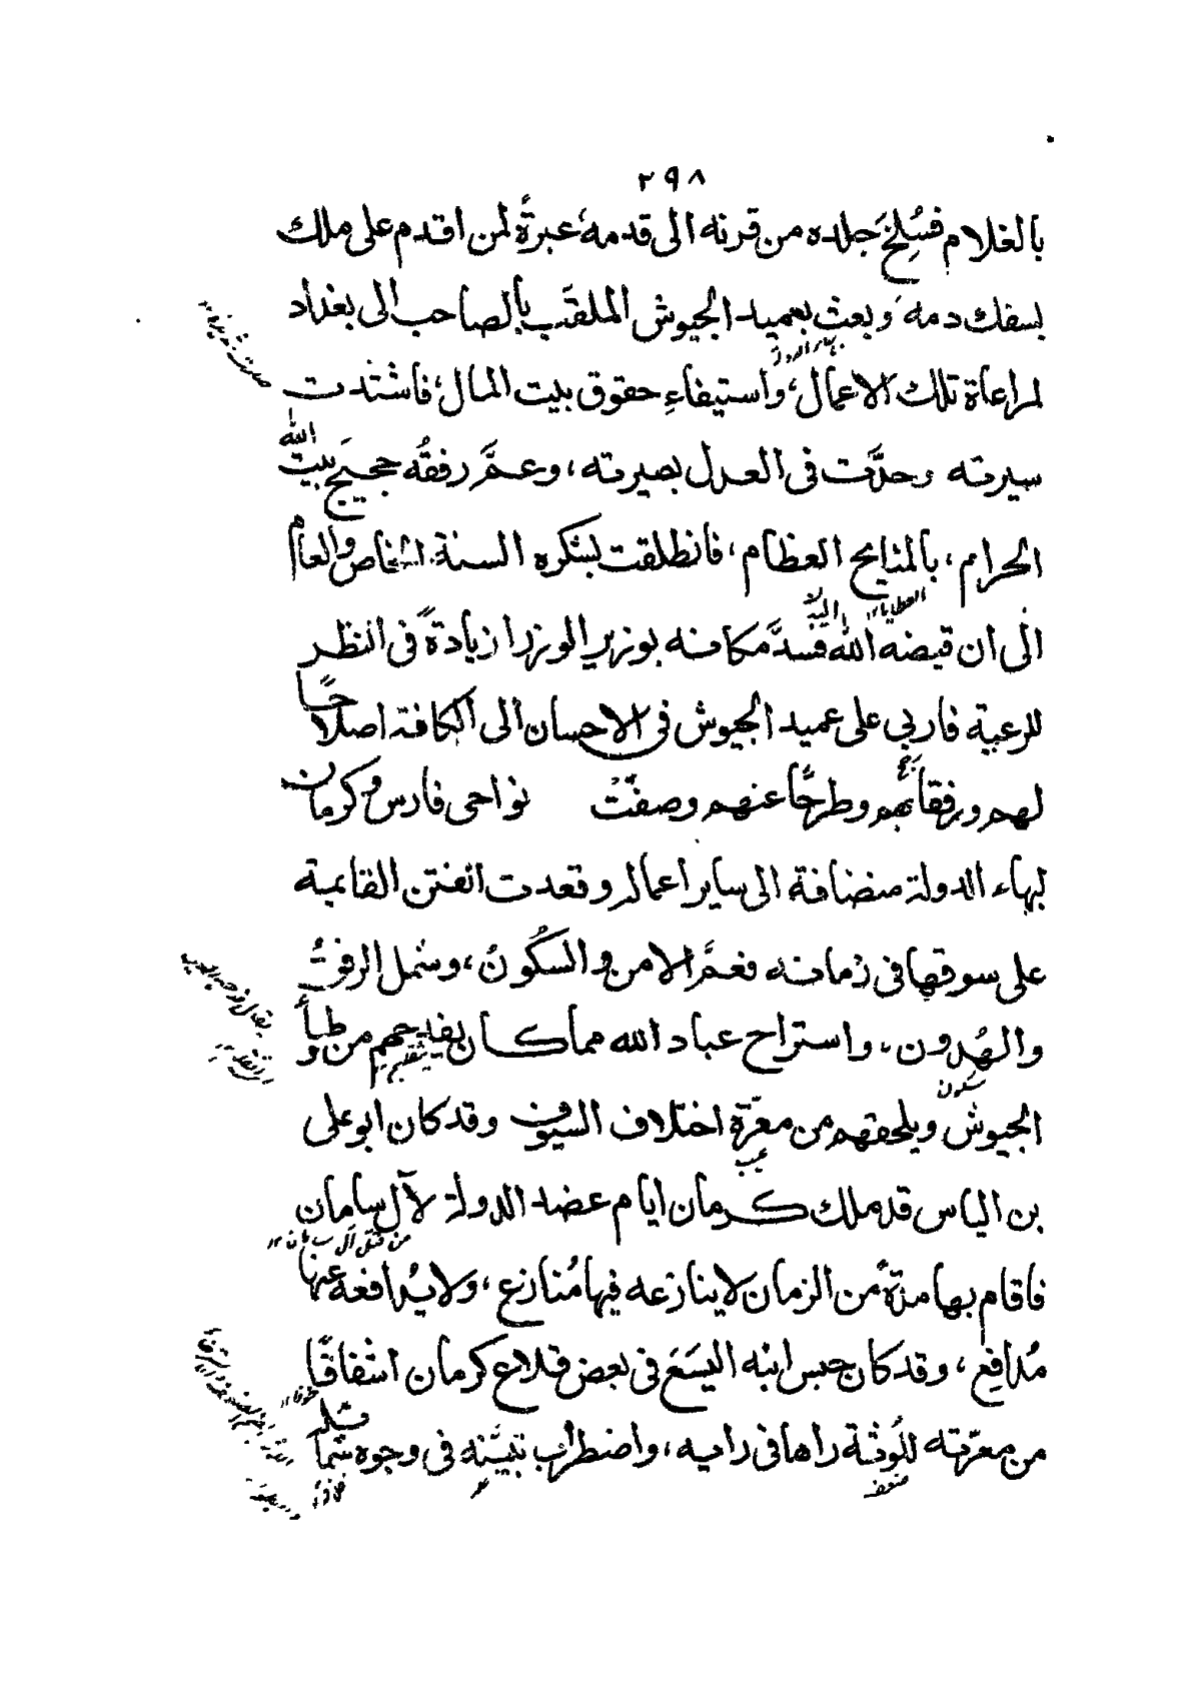 ٢٩٨
بالغلام فسُلِخَ جلده من قرنه الى قدمه، عبرةً لمن اقدم على ملك
بسفك دمه، وبعث بعميد الجيوش الملقَّب بالصاحب الى بغداد
بهاء الدولة
لمراعاة تلك الاعمال، واستيفاءِ حقوق بيت المال، فاشتدت
سيرته وحدَّت فى العدل بصيرته، وعمَّ رفقُه حجيجَ بيت الله
الحرام، بالمنايح العظام، فانطلقت بشكره السنة الخاص والعام
العطايا
الى ان قبضه الله اليه فسدَّ مكانه بوزير الوزرا زيادةً فى النظر
للرعية فاربى على عميد الجيوش فى الاحسان الى الكافة اصلاحًا
لهم ورفقاً بهم وطرحًا عنهم وصفَتْ نواحى فارس وكرمان
لبهاء الدولة منضافة الى ساير اعماله وقعدت الفتن القايمة
على سوقها فى زمانه فعمَّ الامن والسكُونُ، وشمل الرفقُ
والهُدون، واستراح عباد الله مما كان يفدحهم من وطأ
سكون
الجيوش ويلحقهم من معرّة اختلاف السيوف وقد كان ابو على
عيب
بن الياس قد ملك كرمان ايام عضد الدولة لآل سامان
فاقام بها مدةً من الزمان لاينازعه فيها مُنازع، ولا يُدافعه عنها
مُدافِع، وقد كان حبس ابنه اليسَعَ فى بعض قلاع كرمان اشفاقًا
خوفا
من معرّته للُوثة راها فى رايه، واضطراب تبيَّنه فى وجوه شمائله
ضعف